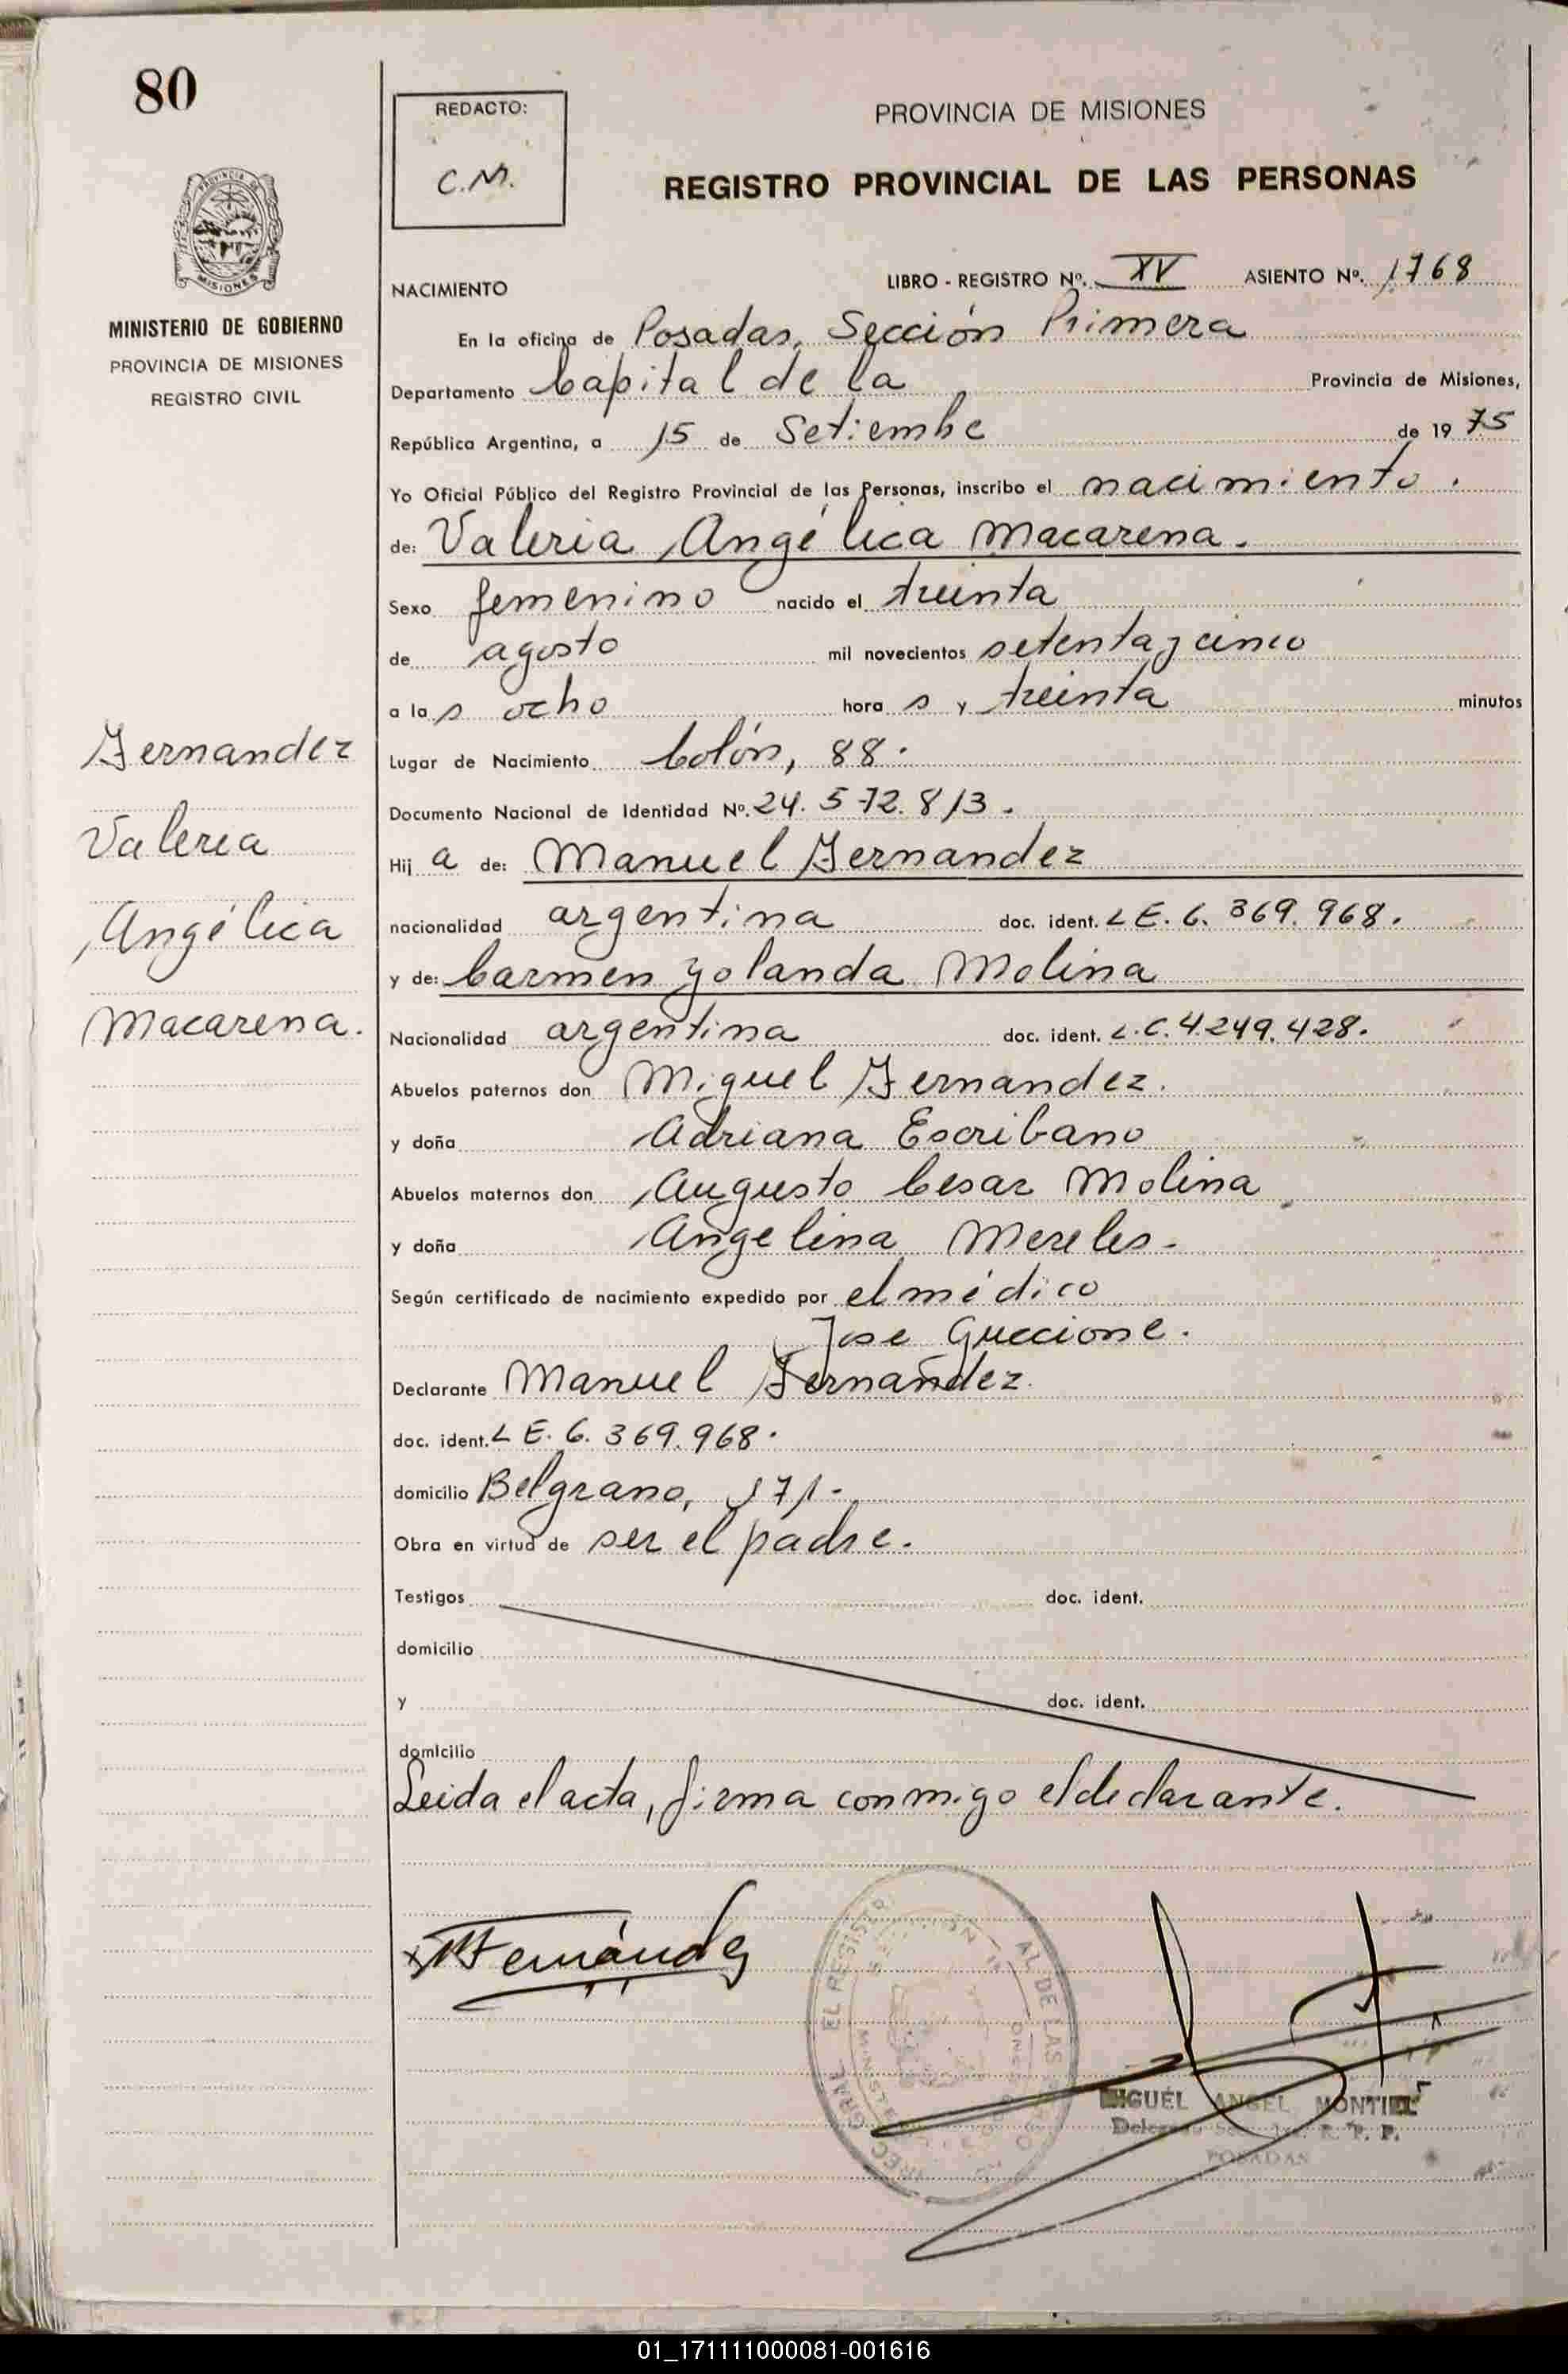 80
REDACTO:
C.M.
PROVINCIA DE MISIONES
REGISTRO PROVINCIAL DE LAS PERSONAS
PROVINCIA DE
MISIONES
MINISTERIO DE GOBIERNO
PROVINCIA DE MISIONES
REGISTRO CIVIL
NACIMIENTO
LIBRO - REGISTRO Nº. XV ASIENTO Nº. 1768
En la oficina de Posadas, Sección Primera
Departamento Capital de la Provincia de Misiones,
República Argentina, a 15 de Setiembe de 1975
Yo Oficial Público del Registro Provincial de las Personas, inscribo el nacimiento.
de: Valeria Angélica Macarena.
Sexo femenino nacido el treinta
de agosto mil novecientos setenta y cinco
a las ocho horas y treinta minutos
Lugar de Nacimiento Colón, 88.
Documento Nacional de Identidad Nº. 24.572.813.
Hija de: Manuel Fernandez
nacionalidad argentina doc. ident. L E. 6. 369. 968.
y de: Carmen Yolanda Molina
Nacionalidad argentina doc. ident. L.C. 4.249.428.
Abuelos paternos don Miguel Fernandez.
y doña Adriana Escribano
Abuelos maternos don Augusto Cesar Molina
y doña Angelina Mereles.
Según certificado de nacimiento expedido por el médico
Jose Guccione.
Declarante Manuel Fernandez.
doc. ident. L E. 6. 369.968.
domicilio Belgrano, 171.
Obra en virtud de ser el padre.
Testigos doc. ident.
domicilio
y doc. ident.
domicilio
Leida el acta, firma conmigo el declarante.
Fernandez
Valeria
Angélica
Macarena.
MFernández
EL REGISTR AL DE LAS
MIGUEL ANGEL MONTIEL
R. P. P.
POSADAS
01_171111000081-001616